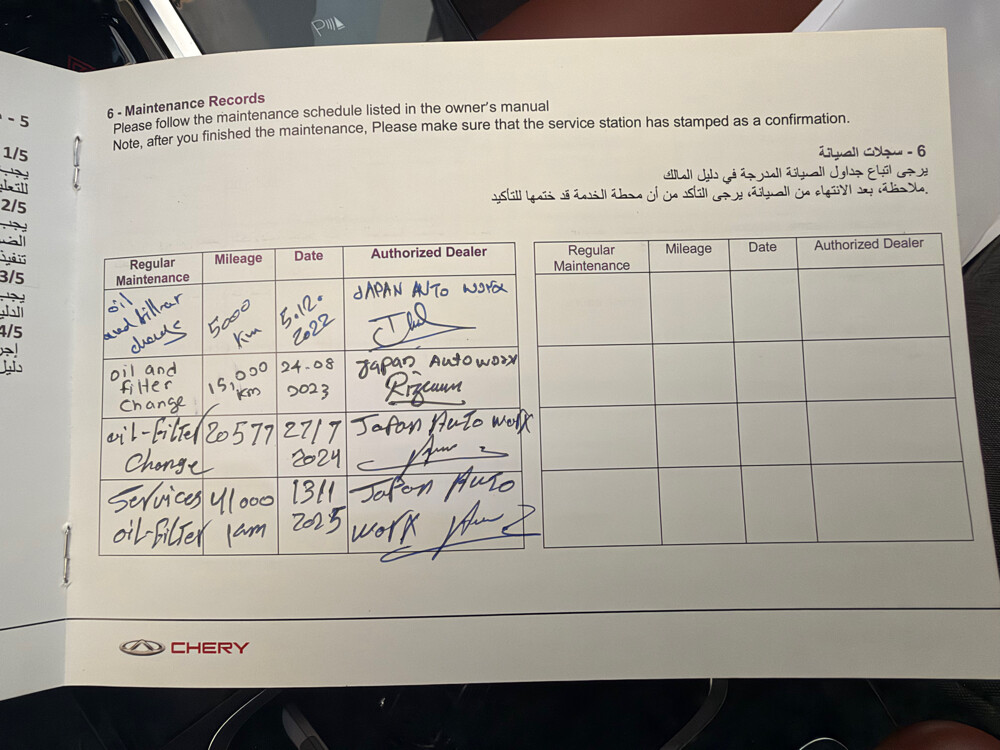 - 5
1/5
يجب
للتعل
2/5
يجب
تنفيذ
3/5
يجب
4/5
دليل
6 - Maintenance Records
Please follow the maintenance schedule listed in the owner's manual
Note, after you finished the maintenance, Please make sure that the service station has stamped as a confirmation.
6 - سجلات الصيانة
يرجى اتباع جداول الصيانة المدرجة في دليل المالك
ملاحظة، بعد الانتهاء من الصيانة، يرجى التأكد من أن محطة الخدمة قد ختمها للتأكيد.
Regular Maintenance Mileage Date Authorized Dealer
oil and fillter 5000 Km 5.12. 2022 JAPAN AUTO worx
oil and filter change 15,000 km 24-08 2023 Japan Auto worx
oil-filter Change 20577 27/7 2024 Japan Auto worx
Services oil-filter 41000 km 13/1 2025 Japan Auto worx
Regular Maintenance Mileage Date Authorized Dealer
CHERY